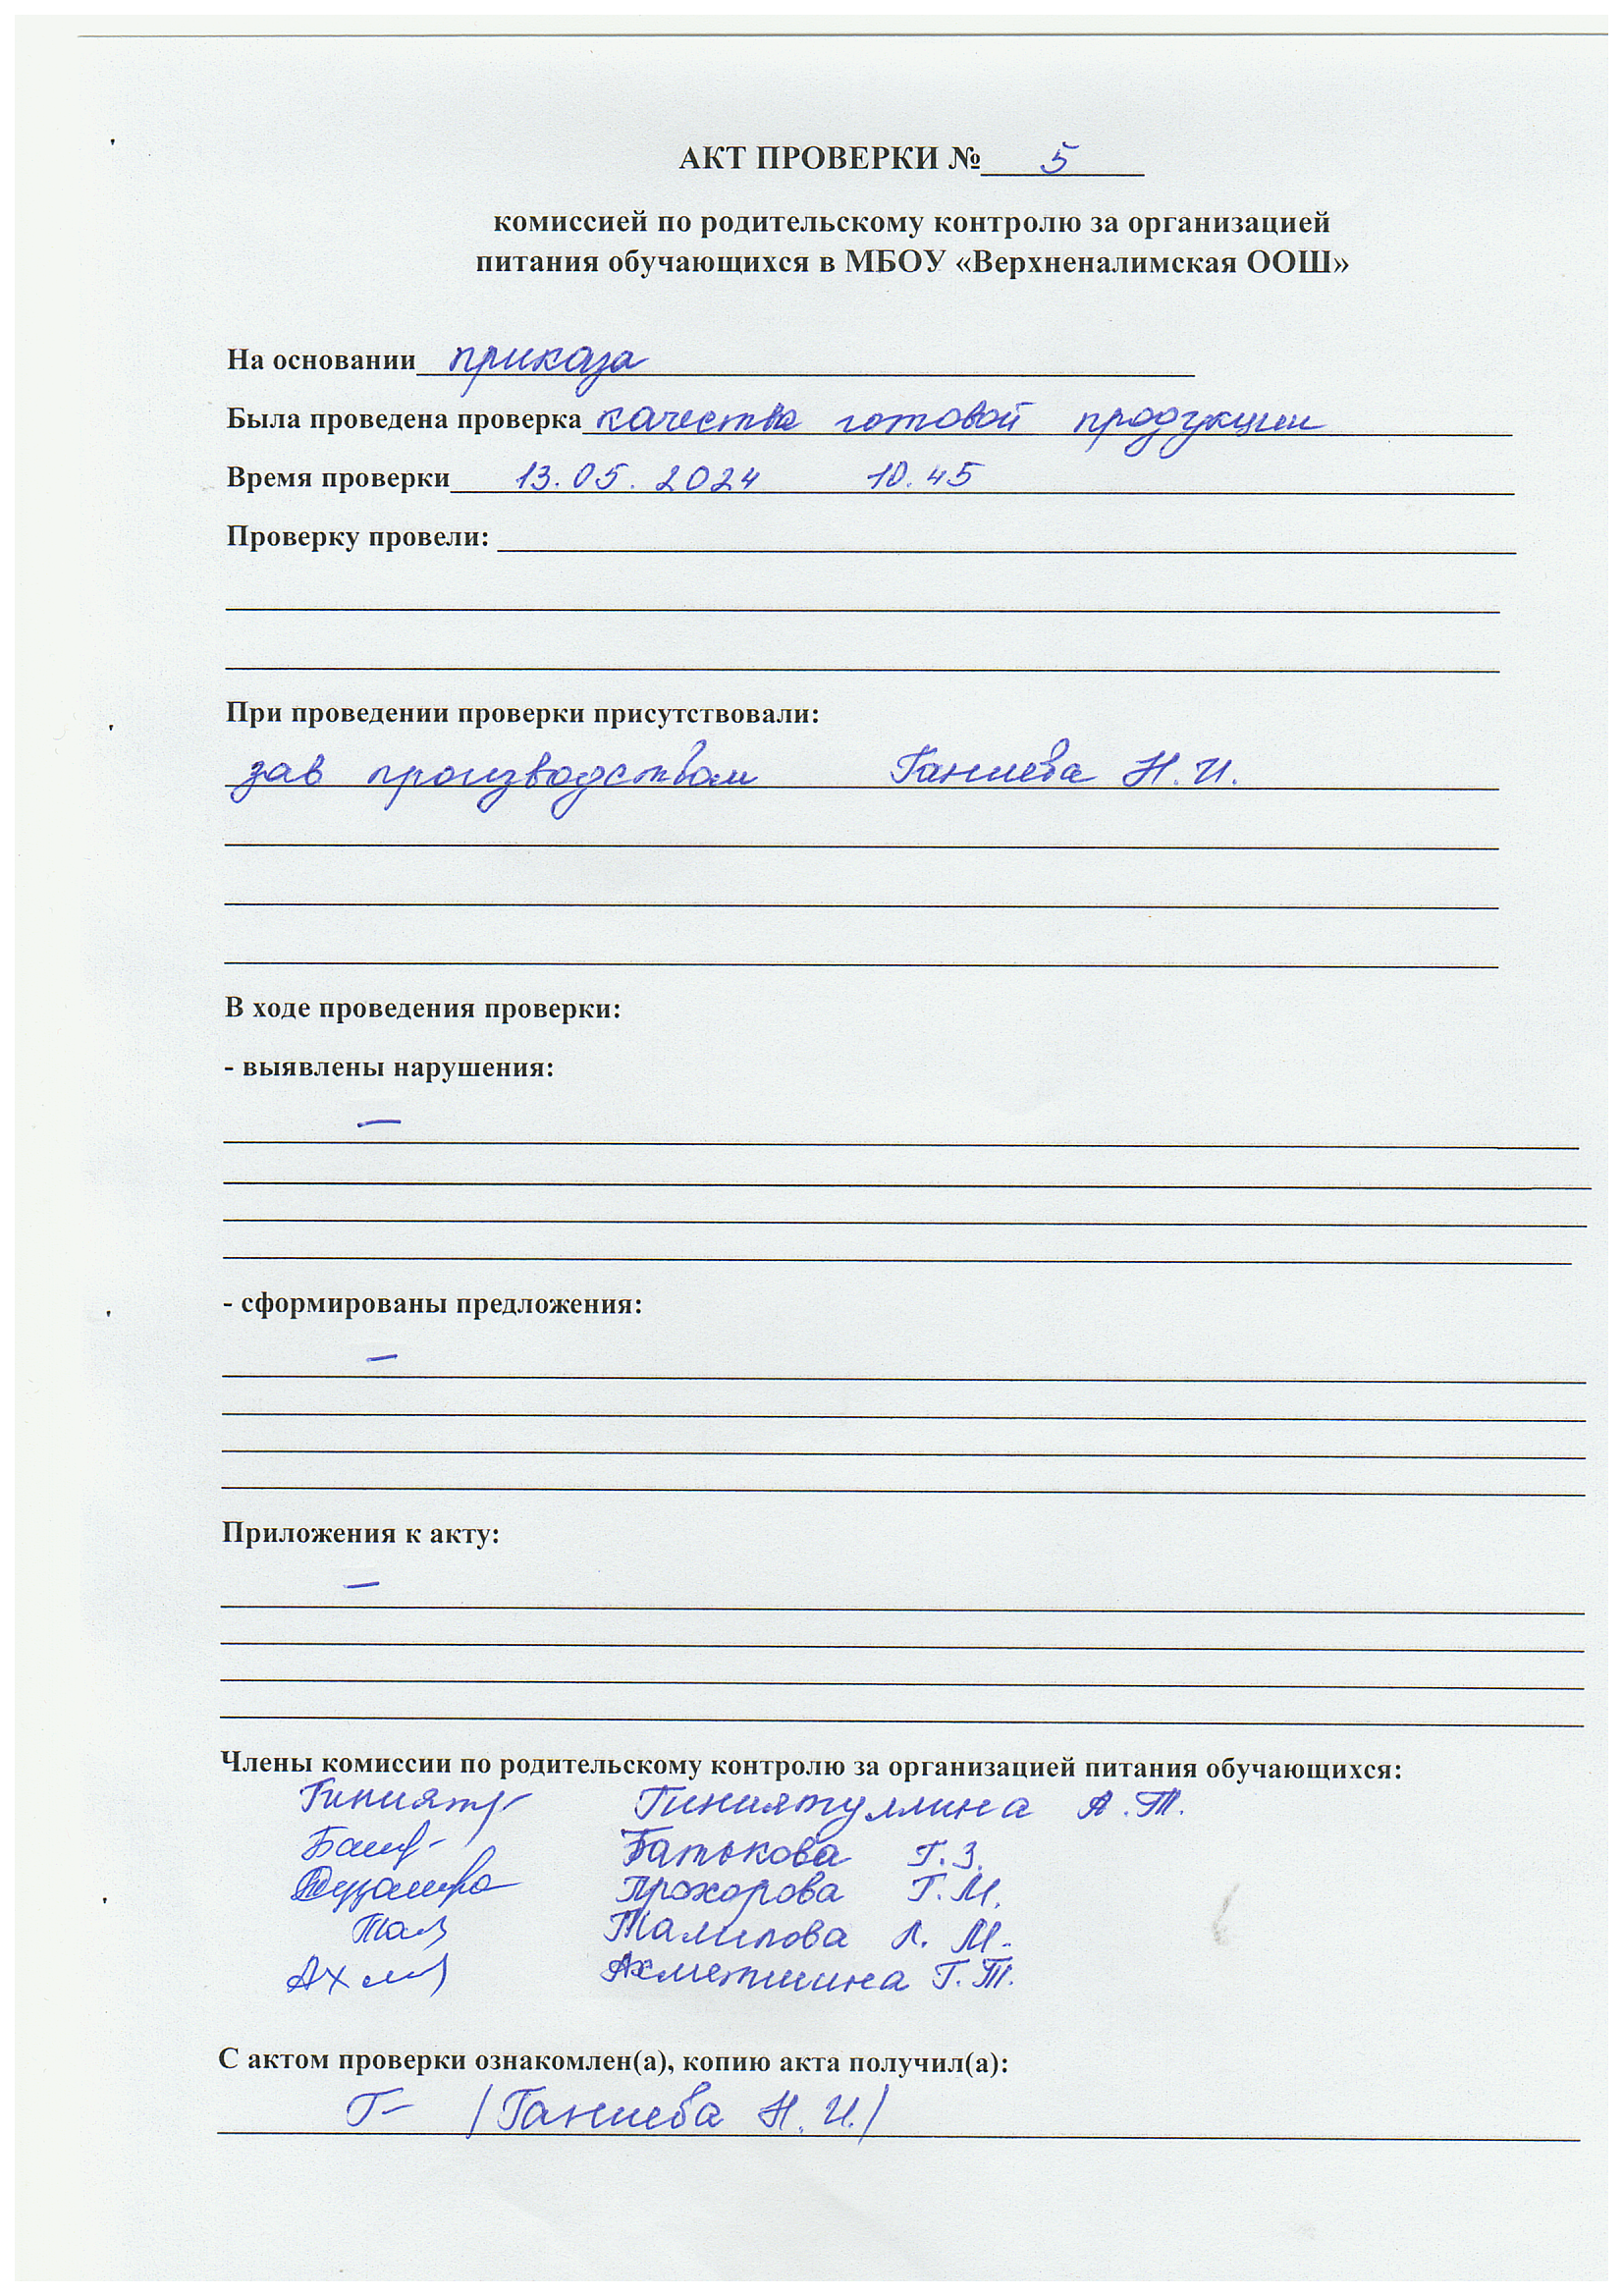 АКТ ПРОВЕРКИ № 5
комиссией по родительскому контролю за организацией
питания обучающихся в МБОУ «Верхненалимская ООШ»
На основании приказа
Была проведена проверка качества готовой продукции
Время проверки 13.05.2024 10.45
Проверку провели:
При проведении проверки присутствовали:
зав производством Ганиева Н.И.
В ходе проведения проверки:
- выявлены нарушения:
—
- сформированы предложения:
—
Приложения к акту:
—
Члены комиссии по родительскому контролю за организацией питания обучающихся:
Гиниятуллина А.Т.
Батькова Г.З.
Прохорова Г.М.
Талипова Л.М.
Ахметшина Г.Т.
С актом проверки ознакомлен(а), копию акта получил(а):
Г- /Ганиева Н.И./